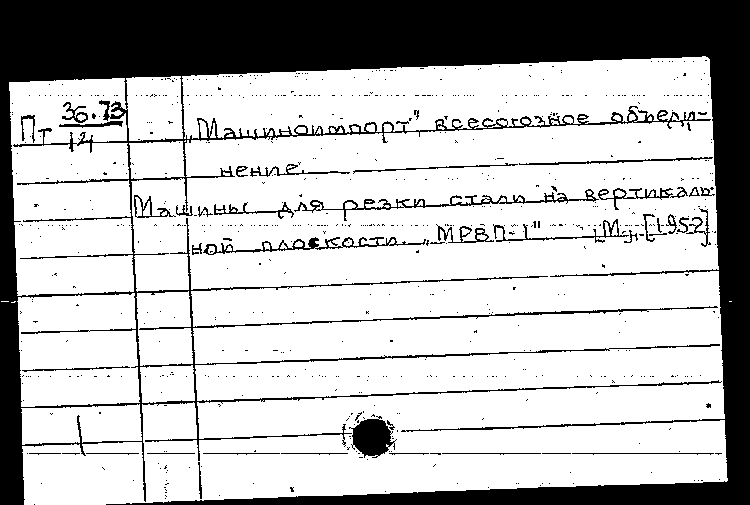 Пт 36.73
14
„Машиноимпорт", всесоюзное объеди-
нение.
Машины для резки стали на вертикаль-
ной плоскости. „МРВП-1" [М.], [1952]